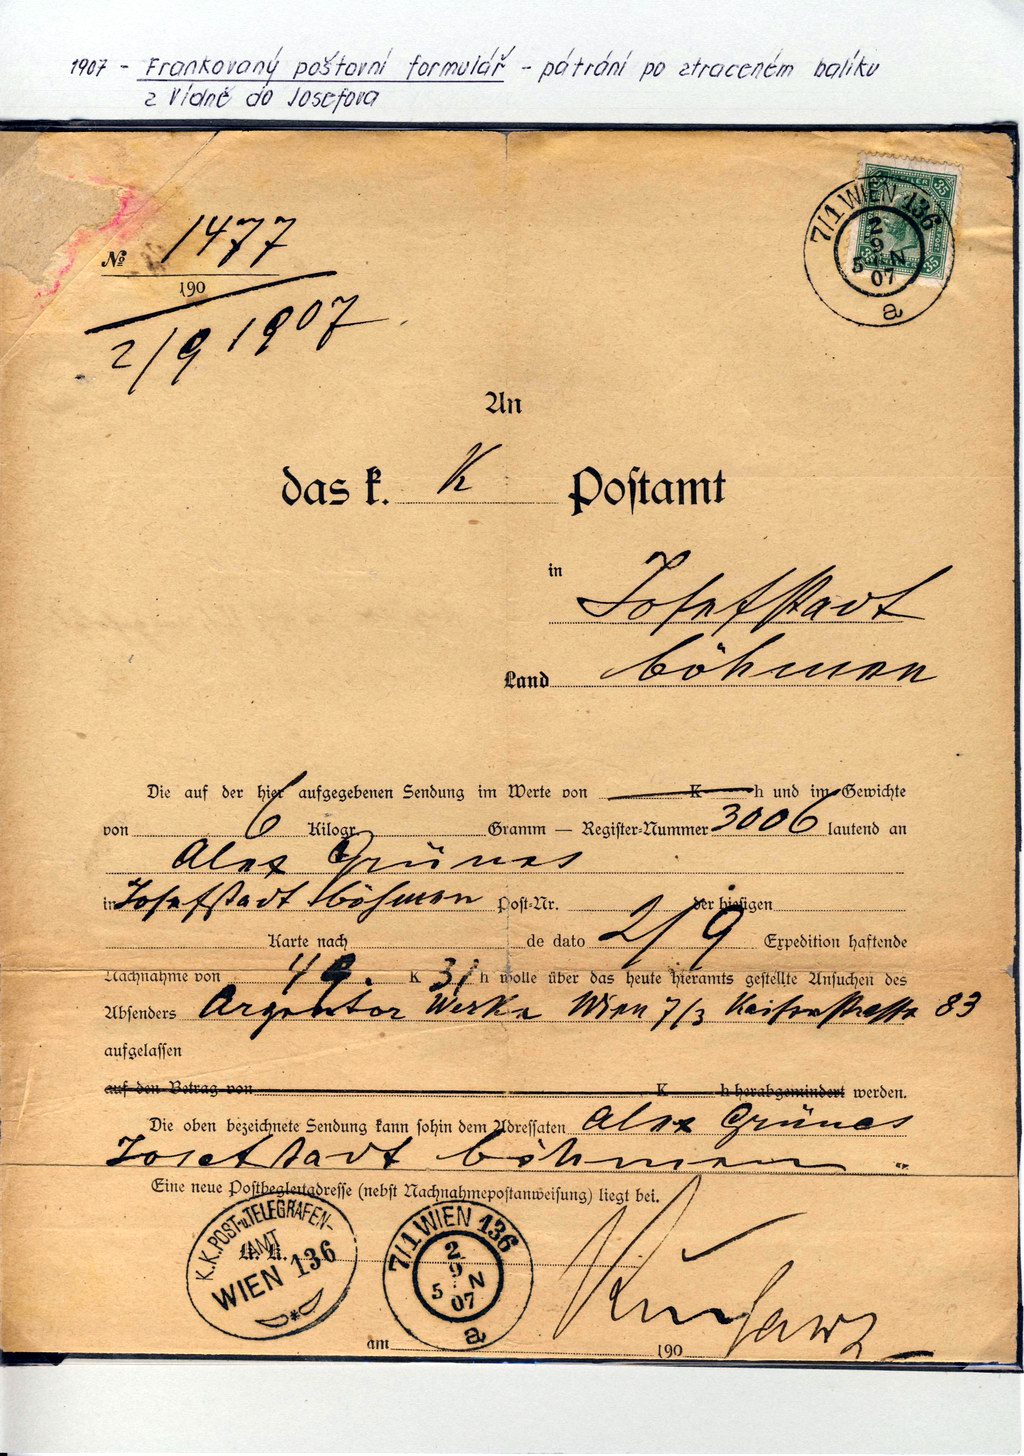 1907 - Frankovaný poštovní formulář - pátrání po ztraceném balíku
z Vídně do Josefova
35 35
7/1 WIEN 136
2
9
5 N
07
a
№ 1477
190
2/9 1907
An
das k. K Postamt
in Josefstadt
Land Böhmen
Die auf der hier aufgegebenen Sendung im Werte von K h und im Gewichte
von 6 Kilogr. Gramm — Register-Nummer 3006 lautend an
Alex Grünes
in Josefstadt Böhmen Post-Nr. der hiesigen
Karte nach de dato 2/9 Expedition haftende
Nachnahme von 49. K 31 h wolle über das heute hieramts gestellte Ansuchen des
Absenders Argentor Werke Wien 7/3 Kaiserstrasse 83
aufgelassen
auf den Betrag von K h herabgemindert werden.
Die oben bezeichnete Sendung kann sohin dem Adressaten Alex Grünes
Josefstadt Böhmen
Eine neue Postbegleitadresse (nebst Nachnahmepostanweisung) liegt bei.
K.K. POST- u. TELEGRAFEN-
AMT
WIEN 136
7/1 WIEN 136
2
9
5 N
07
a
am 190